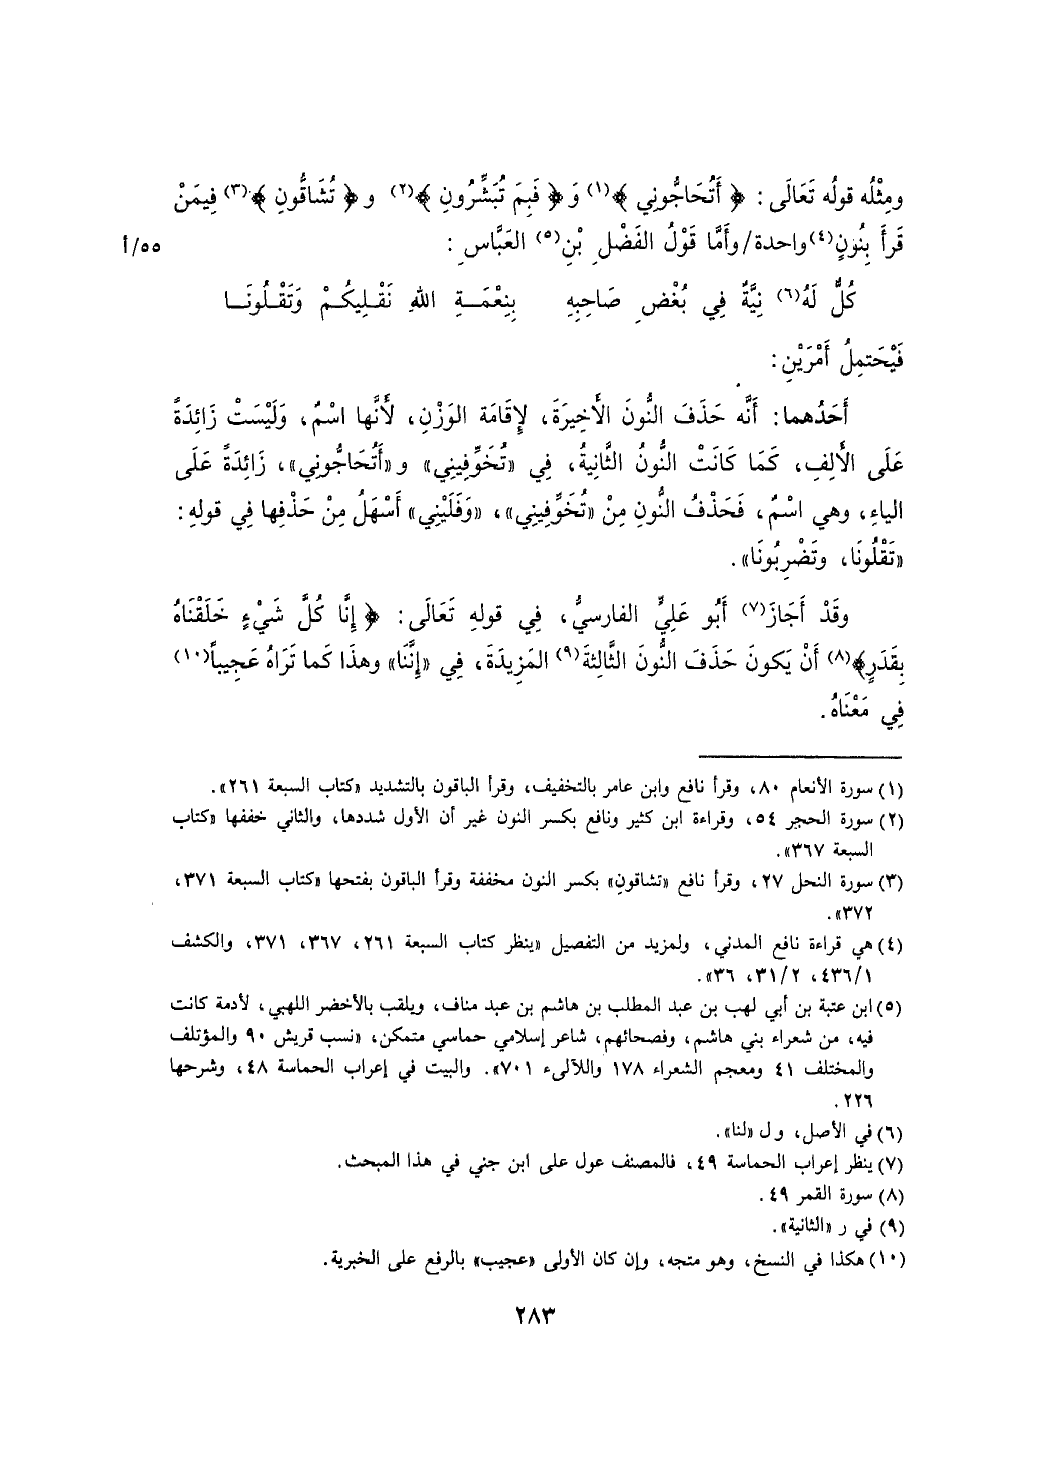 ومِثْلُه قولُه تَعَالَى : ﴿ أَتُحَاجُّونِي ﴾(١) وَ ﴿ فَبِمَ تُبَشِّرُونِ ﴾(٢) و ﴿ تُشَاقُّونِ ﴾(٣) فِيمَنْ
قَرَأَ بِنُونٍ(٤) واحدة/ وأَمَّا قَوْلُ الفَضْلِ بْنِ(٥) العَبَّاسِ :
٥٥/أ
كُلٌّ لَهُ(٦) نِيَّةٌ فِي بُغْضِ صَاحِبِهِ بِنِعْمَـةِ اللهِ نَقْـلِيكُـمْ وَتَقْـلُونَـا
فَيْحَتمِلُ أَمْرَيْنِ :
أَحَدُهما: أَنَّه حَذَفَ النُّونَ الأَخِيرَةَ، لإِقَامَة الوَزْنِ، لأَنَّها اسْمٌ، وَلَيْسَتْ زَائِدَةً
عَلَى الأَلِفِ، كَمَا كَانَتْ النُّونُ الثَّانِيةُ، فِي «تُخَوِّفِيني» و«أَتُحَاجُّوني»، زَائِدَةً عَلَى
الياءِ، وهي اسْمٌ، فَحَذْفُ النُّونِ مِنْ «تُخَوِّفِيني»، «وَفَلَيْنِي» أَسْهَلُ مِنْ حَذْفِها فِي قولهِ :
«تَقْلُونَا، وتَضْرِبُونَا».
وقَدْ أَجَازَ(٧) أَبُو عَلِيٍّ الفارسيُّ، فِي قولهِ تَعَالَى: ﴿ إِنَّا كُلَّ شَيْءٍ خَلَقْنَاهُ
بِقَدَرٍ﴾(٨) أَنْ يَكونَ حَذَفَ النُّونَ الثَّالِثةَ(٩) المَزِيدَةَ، فِي «إِنَّنَا» وهذَا كَما تَرَاهُ عَجِيباً(١٠)
فِي مَعْنَاهُ.
(١) سورة الأنعام ٨٠، وقرأ نافع وابن عامر بالتخفيف، وقرأ الباقون بالتشديد «كتاب السبعة ٢٦١».
(٢) سورة الحجر ٥٤، وقراءة ابن كثير ونافع بكسر النون غير أن الأول شددها، والثاني خففها «كتاب
السبعة ٣٦٧».
(٣) سورة النحل ٢٧، وقرأ نافع «تشاقون» بكسر النون مخففة وقرأ الباقون بفتحها «كتاب السبعة ٣٧١،
٣٧٢».
(٤) هي قراءة نافع المدني، ولمزيد من التفصيل «ينظر كتاب السبعة ٢٦١، ٣٦٧، ٣٧١، والكشف
٤٣٦/١، ٣١/٢، ٣٦».
(٥) ابن عتبة بن أبي لهب بن عبد المطلب بن هاشم بن عبد مناف، ويلقب بالأخضر اللهبي، لأدمة كانت
فيه، من شعراء بني هاشم، وفصحائهم، شاعر إسلامي حماسي متمكن، «نسب قريش ٩٠ والمؤتلف
والمختلف ٤١ ومعجم الشعراء ١٧٨ واللآلىء ٧٠١». والبيت في إعراب الحماسة ٤٨، وشرحها
٢٢٦.
(٦) في الأصل، و ل «لنا».
(٧) ينظر إعراب الحماسة ٤٩، فالمصنف عول على ابن جني في هذا المبحث.
(٨) سورة القمر ٤٩.
(٩) في ر «الثانية».
(١٠) هكذا في النسخ، وهو متجه، وإن كان الأولى «عجيب» بالرفع على الخبرية.
٢٨٣